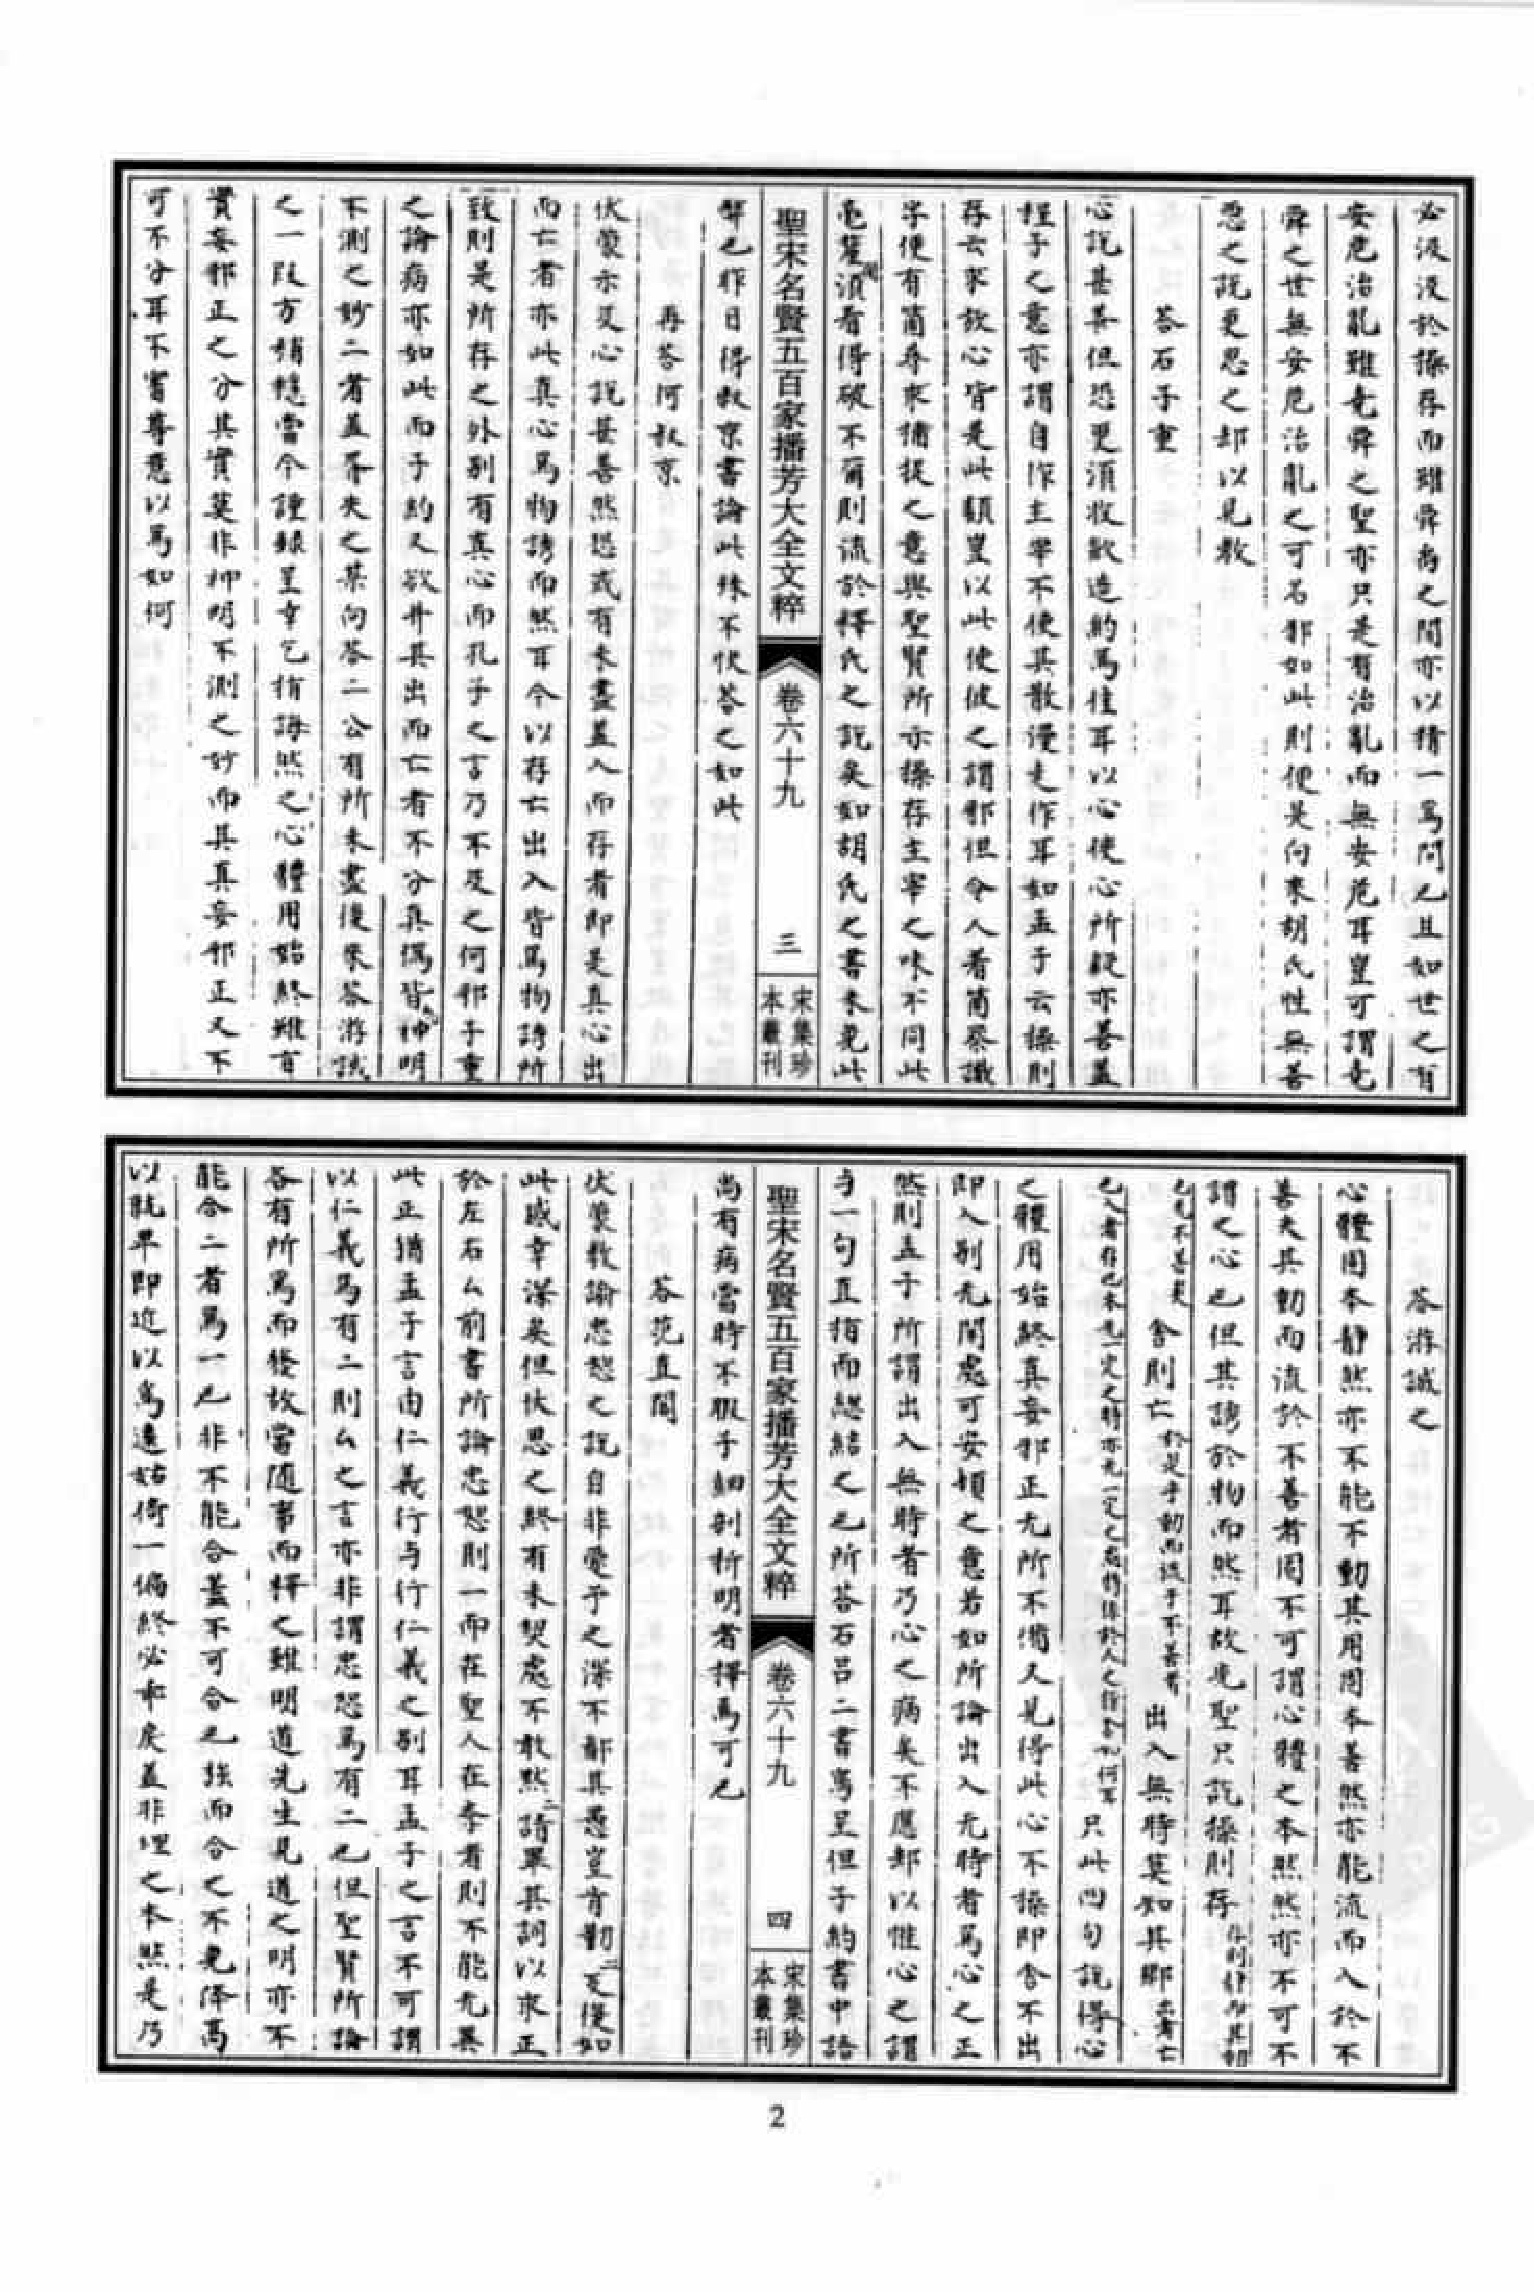 必汲汲於操存而雖舜禹之間亦以精一爲問也且如世之有
安危治亂雖堯舜之聖亦只是有治亂而無安危耳豈可謂堯
舜之世無安危治亂之可名邪如此則便是向來胡氏性無善
惡之說更思之却以見教
荅石子重
心說甚善但恐更須收歛造約爲佳耳以心使心所疑亦善蓋
程子之意亦謂自作主宰不使其散漫走作耳如孟子云操則
存云求放心皆是此類豈以此使彼之謂邪但令人着箇察識
字便有箇尋求捕捉之意與聖賢所示操存主宰之味不同此
毫釐間須看得破不爾則流於釋氏之說矣如胡氏之書未免此
聖宋名賢五百家播芳大全文粹
卷六十九
三
宋集珍
本叢刊
弊也昨日得叔京書論此殊不快荅之如此
再荅何叔京
伏蒙示及心說甚善然恐或有未盡蓋入而存者即是真心出
而亡者亦此真心爲物誘而然耳今以存亡出入皆爲物誘所
致則是所存之外別有真心而孔子之言乃不及之何邪子重
之論病亦如此而子約又欲并其出而亡者不分真僞皆爲神明
不測之妙二者蓋胥失之某向荅二公有所未盡後來荅游誠
之一段方稍穩當今謹錄呈幸乞指誨然之心體用始終雖有
實妄邪正之分其實莫非神明不測之妙而其真妄邪正又不
可不分耳不審尊意以爲如何
荅游誠之
心體固本靜然亦不能不動其用固本善然亦能流而入於不
善夫其動而流於不善者固不可謂心體之本然然亦不可不
謂之心也但其誘於物而然耳故先聖只說操則存存則靜而其動
也无不善矣舍則亡於是乎動而流于不善者出入無時莫知其鄉出者亡
也入者存也本无一定之時亦无一定之處特係於人之操舍如何耳只此四句說得心
之體用始終真妄邪正无所不備又見得此心不操即舍不出
即入別无閒處可安頓之意若如所論出入无時者爲心之正
然則孟子所謂出入無時者乃心之病矣不應却以惟心之謂
与一句直指而緫結之也所荅石吕二書寫呈但子約書中語
聖宋名賢五百家播芳大全文粹
卷六十九
四
宋集珍
本叢刊
尚有病當時不暇子細剖析明者擇焉可也
荅范直閣
伏蒙教諭忠恕之說自非愛予之深不鄙其愚豈肯勤勤反復如
此感幸深矣但伏思之終有未契處不敢默默請畢其詞以求正
於左右ム前書所論忠恕則一而在聖人在李者則不能无異
此正猶孟子言由仁義行与行仁義之別耳孟子之言不可謂
以仁義爲有二則ム之言亦非謂忠恕爲有二也但聖賢所論
各有所爲而發故當随事而釋之雖明道先生見道之明亦不
能合二者爲一也非不能合蓋不可合也強而合之不免降高
以就卑即近以爲遠姑倚一偏終必乖戾蓋非理之本然是乃
2